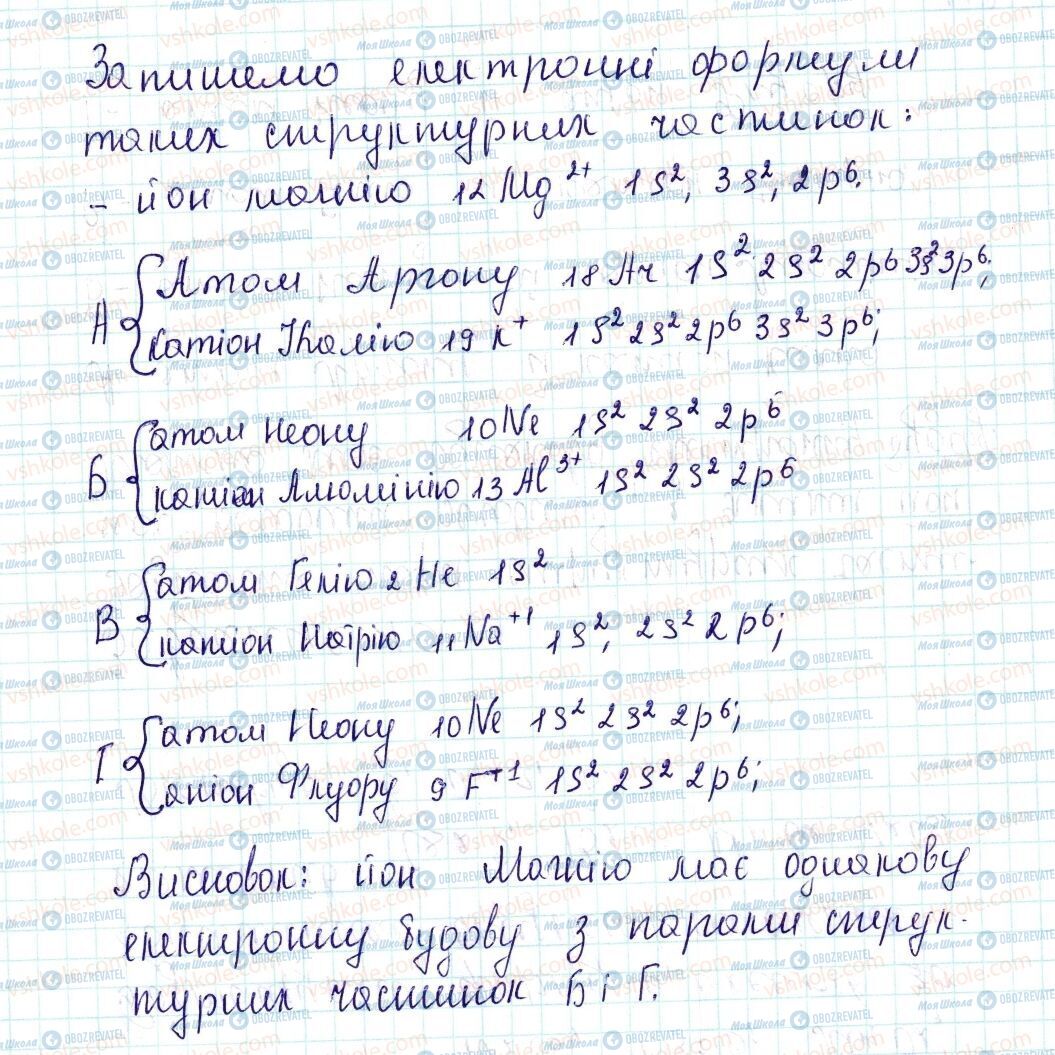 Запишемо електронні формули
таких структурних частинок:
- йон магнію 12 Mg²⁺ 1s², 3s², 2p⁶.
А { Атом Аргону 18 Ar 1s² 2s² 2p⁶ 3s² 3p⁶;
катіон Калію 19 K⁺ 1s² 2s² 2p⁶ 3s² 3p⁶;
Б { атом Неону 10 Ne 1s² 2s² 2p⁶
катіон Алюмінію 13 Al³⁺ 1s² 2s² 2p⁶
В { атом Гелію 2 He 1s²
катіон Натрію 11 Na⁺¹ 1s², 2s² 2p⁶;
Г { атом Неону 10 Ne 1s² 2s² 2p⁶;
аніон Флуору 9 F⁺¹ 1s² 2s² 2p⁶;
Висновок: йон Магнію має однакову
електронну будову з парами струк-
турних частинок Б і Г.
vshkole.com
МояШкола OBOZREVATEL